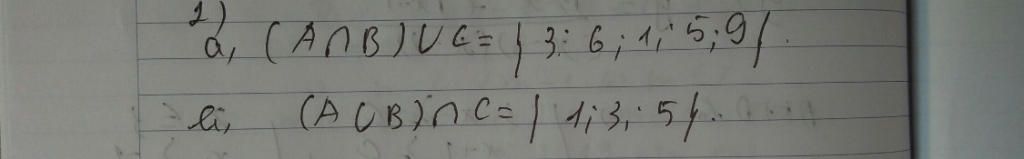 2)
a, (A∩B)∪C= { 3; 6; 1; 5; 9}.
b, (A∪B)∩C= { 1; 3; 5}.